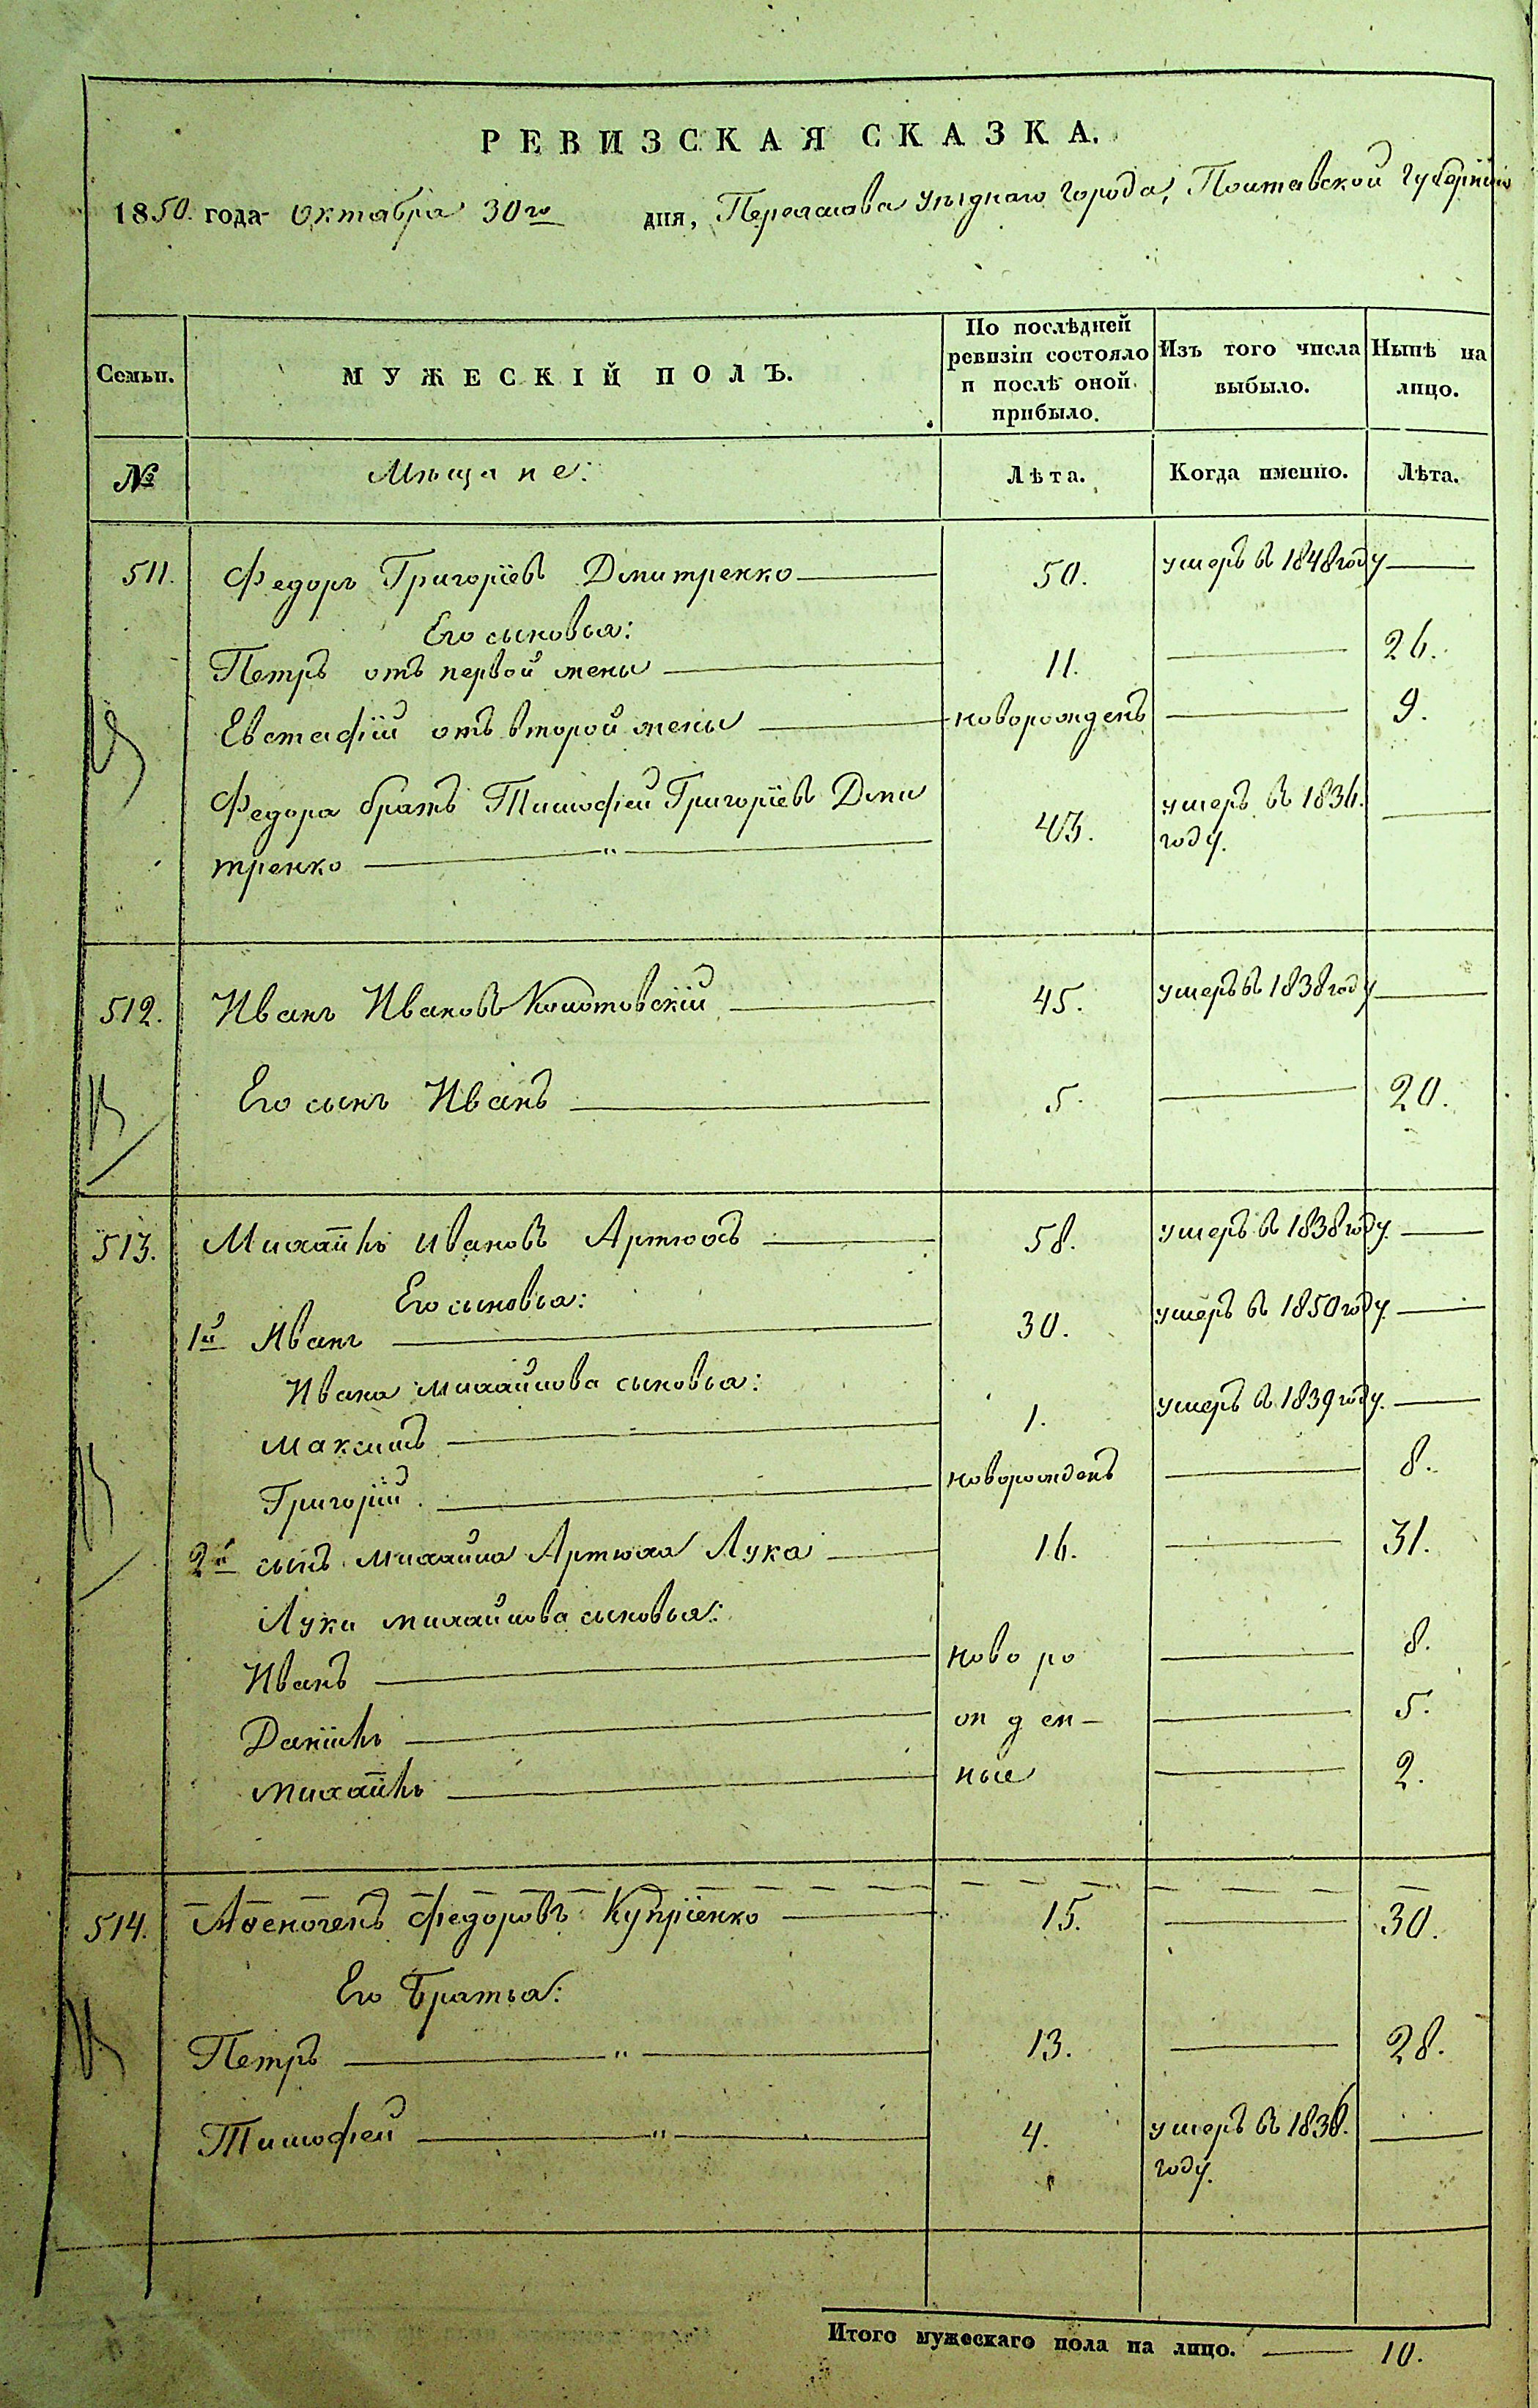 РЕВИЗСКАЯ СКАЗКА.
1850. года октября 30го дня, Переяслова уѣзднаго города, Полтавской Губерніи
Семьи. МУЖЕСКІЙ ПОЛЪ. По послѣдней ревизіи состояло и послѣ оной прибыло. Изъ того числа выбыло. Нынѣ на лицо.
№ Мѣщане: Лѣта. Когда именно. Лѣта.
511. Федоръ Григоріевъ Дмитренко 50. умеръ въ 1848 году
Его сыновья:
Петръ отъ первой жены 11. 26.
Евстафій отъ второй жены новорожденъ 9.
Федора братъ Тимофей Григоріевъ Дми
тренко 43. умеръ въ 1836. году.
512. Иванъ Ивановъ 45. умеръ въ 1838 году
Его сынъ Иванъ 5. 20.
513. Михаилъ Ивановъ Артюхъ 58. умеръ въ 1838 году.
Его сыновья:
1й Иванъ 30. умеръ въ 1850 году.
Ивана Михайлова сыновья:
Максимъ 1. умеръ въ 1839 году.
Григорій новорожденъ 8.
2й сынъ Михаила Артюха Лука 16. 31.
Луки Михайлова сыновья:
Иванъ ново ро 8.
Даніилъ жден- 5.
Михаилъ ные 2.
514. Аѳеногенъ Федоровъ Купріенко 15. 30.
Его братья:
Петръ 13. 28.
Тимофей 4. умеръ въ 1838. году.
Итого мужескаго пола на лицо. 10.